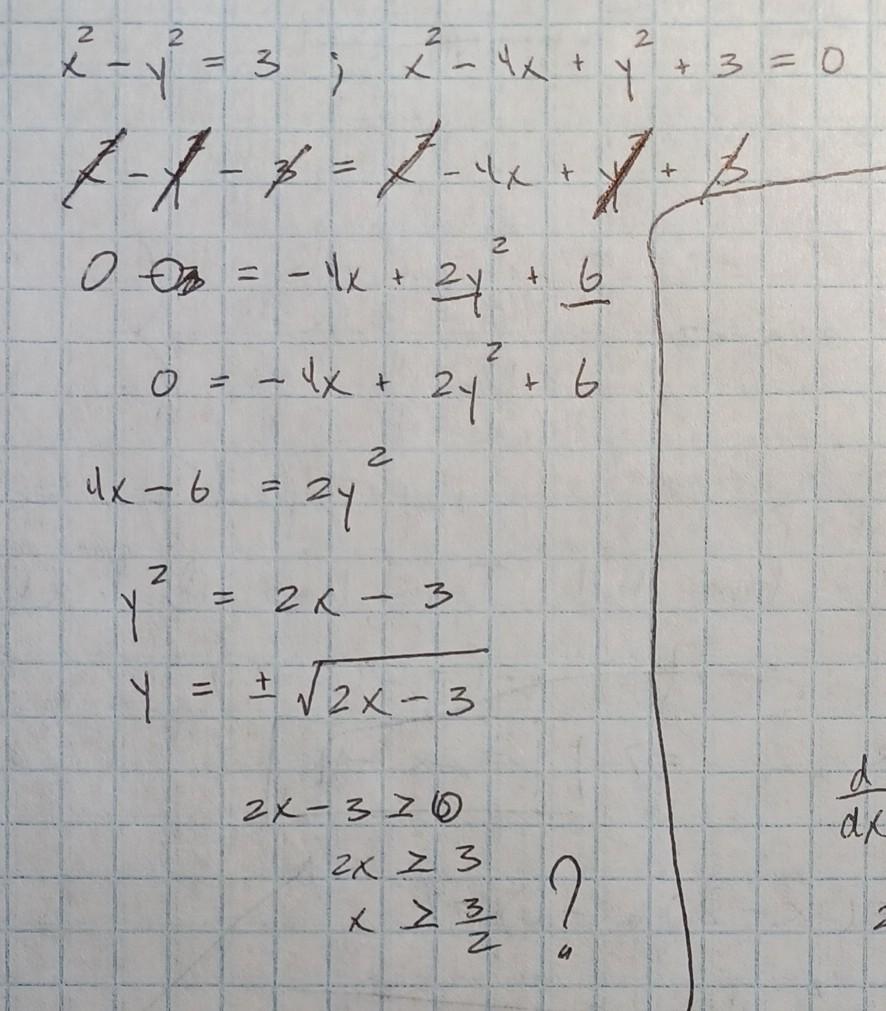 x² - y² = 3 ; x² - 4x + y² + 3 = 0
x² - y² - 3 = x² - 4x + y² + 3
0 = -4x + 2y² + 6
0 = -4x + 2y² + 6
4x - 6 = 2y²
y² = 2x - 3
y = ± √(2x - 3)
2x - 3 ≥ 0
2x ≥ 3
x ≥ 3/2 ?
d/dx